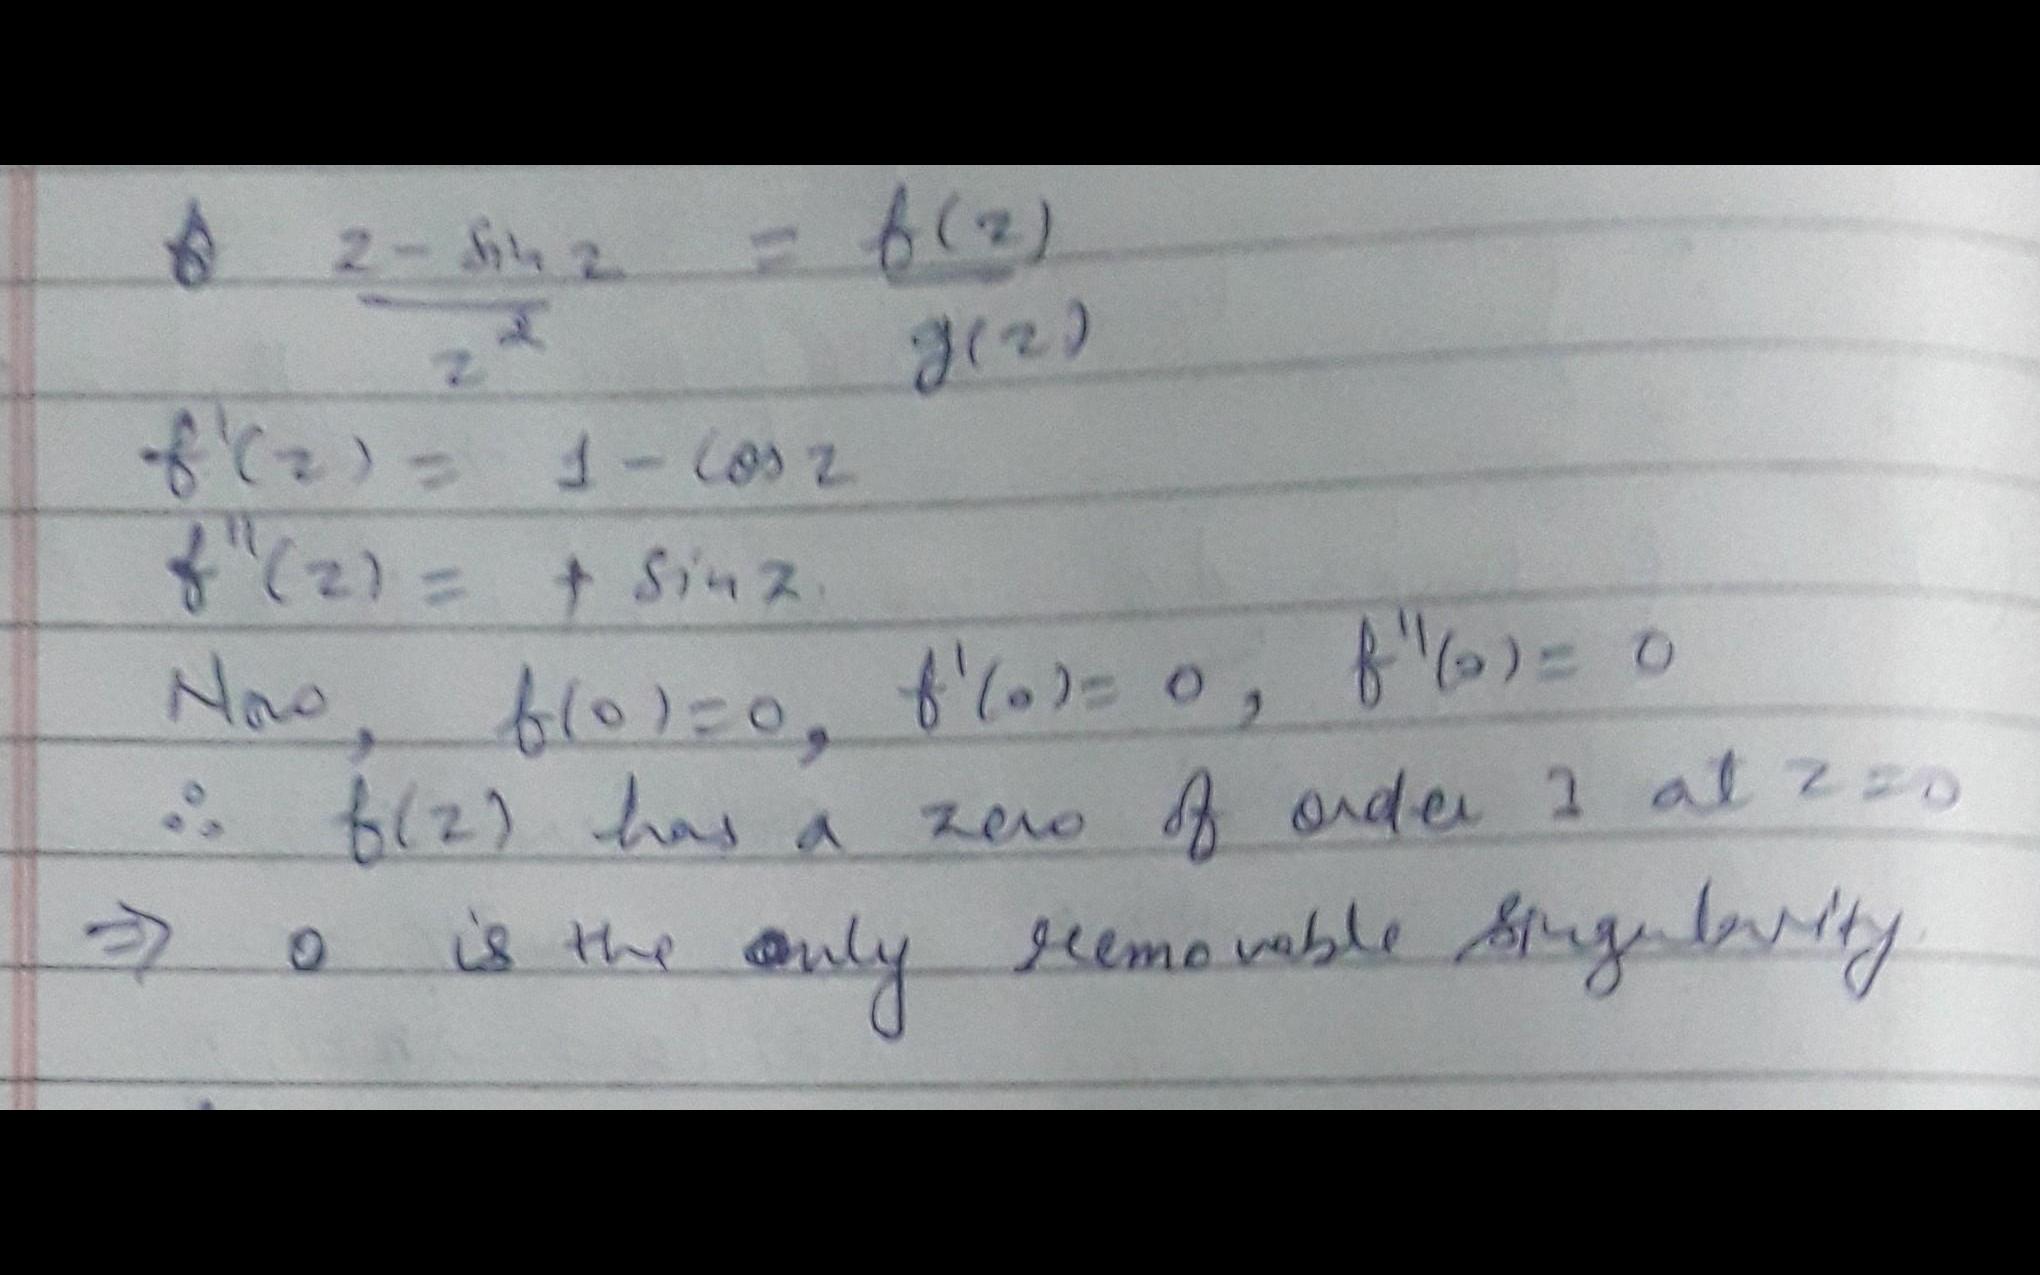 z - sin z / z² = f(z) / g(z)
f'(z) = 1 - cos z
f''(z) = + sin z.
Now, f(0)=0, f'(0)= 0, f''(0)= 0
∴ f(z) has a zero of order 1 at z=0
⇒ 0 is the only removable singularity.